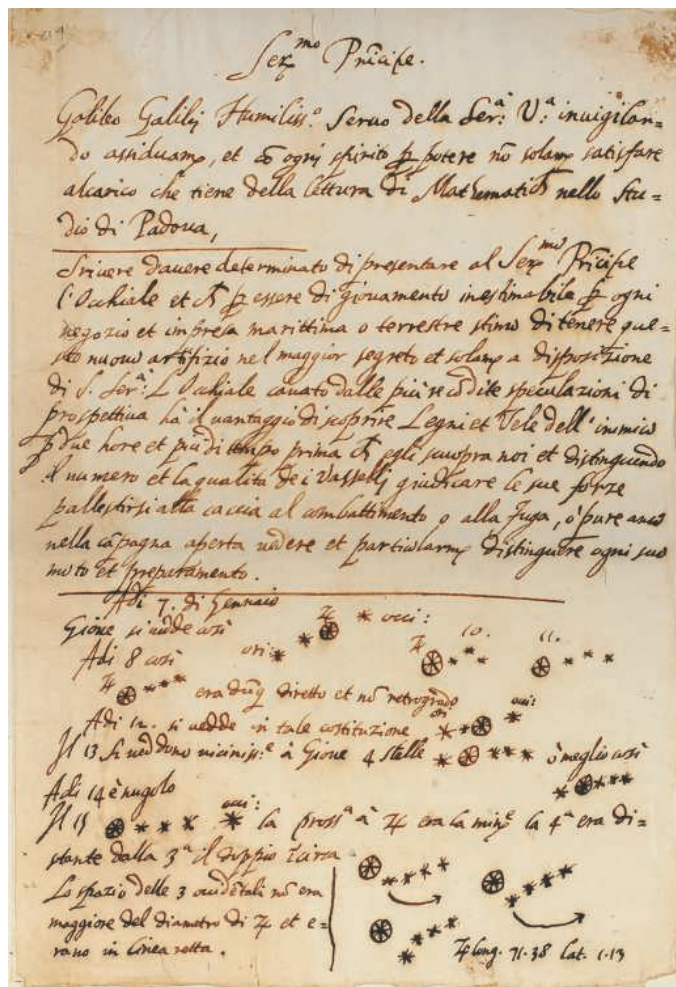 Ser.mo Prĩcipe.
Galileo Galilej Humiliss.o Seruo della Ser:a V:a inuigilan=
do assiduam.e, et cõ ogni spirito p potere nõ solam.e satisfare
alcarico che tiene della lettura di Mathematica nello Stu=
dio di Padoua,
Scriuere dauere determinato di presentare al Ser.mo Prĩcipe
l'Occhiale et p essere di giouamento inestimabile p ogni
negozio et impresa marittima o terrestre stimo di tenere que=
sto nuouo artifizio nel maggior segreto et solam.e a disposizione
di S. Ser:a L'Occhiale cauato dalle più recõdite speculazioni di
prospettiua hà il uantaggio di scoprire Legni et Vele dell'inimico
p due hore et più di tempo prima egli scuopra noi et distinguendo
il numero et la qualità dei Vasselli giudicare le sue forze
pallestirsi alla caccia al combattimento o alla fuga, ò pure anco
nella cãpagna aperta uedere et particularm.e distinguere ogni suo
moto et preparamento.
Adi 7. di Gennaio
Gione si uedde così ♃ * occi:
Adi 8 così ori: ♃ 10. 11.
♃ era dũq diretto et nõ retrogrado
Adi 12. si uedde in tale costituzione ori occi:
Il 13 si ueddono uiciniss:e à Gioue 4 stelle ò meglio così
Adi 14 è nugolo
Il 15 occi: la pross.a à ♃ era la min.e la 4.a era di=
stante dalla 3.a il doppio circa
Lo spazio delle 3 occidẽtali nõ era
maggiore del diametro di ♃ et e=
rano in linea retta.
♃ long. 71.38 lat. 1.13